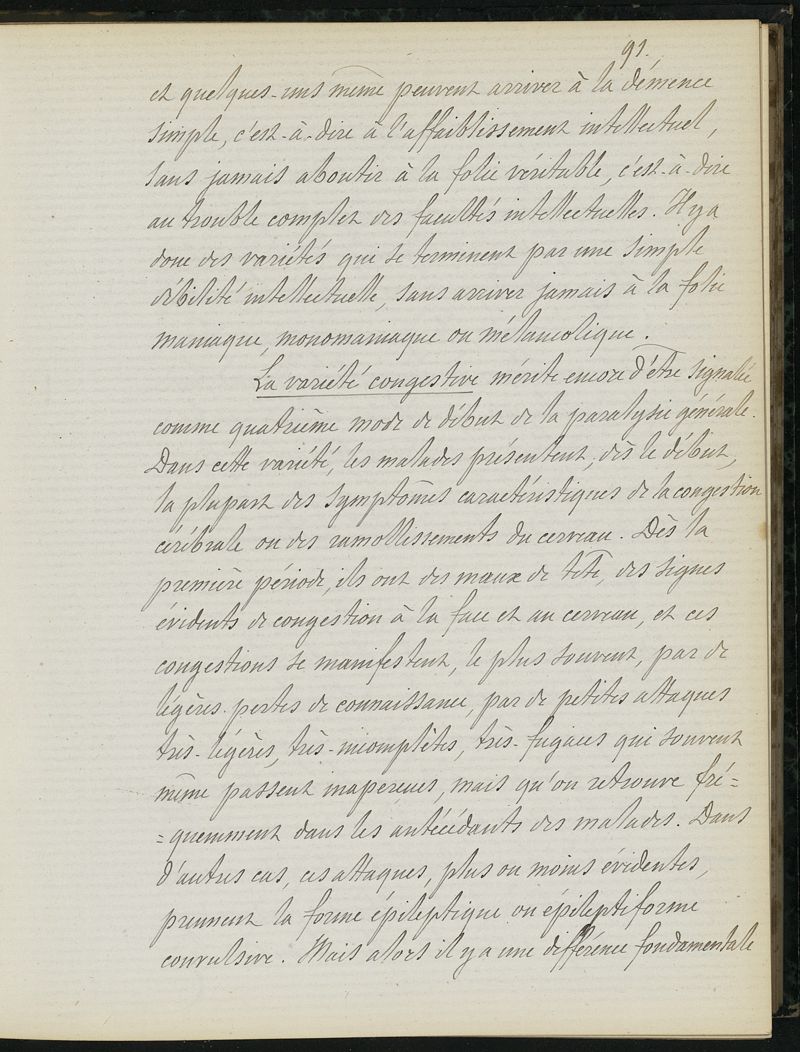 91.
et quelques-uns même peuvent arriver à la démence
simple, c'est-à-dire à l'affaiblissement intellectuel,
sans jamais aboutir à la folie véritable, c'est-à-dire
au trouble complet des facultés intellectuelles. Il y a
donc des variétés qui se terminent par une simple
débilité intellectuelle, sans arriver jamais à la folie
maniaque, monomaniaque ou mélancolique.
La variété congestive mérite encore d'être signalée
comme quatrième mode de début de la paralysie générale.
Dans cette variété, les malades présentent, dès le début,
la plupart des symptômes caractéristiques de la congestion
cérébrale ou des ramollissements du cerveau. Dès la
première période, ils ont des maux de tête, des signes
évidents de congestion à la face et au cerveau, et ces
congestions se manifestent, le plus souvent, par de
légères pertes de connaissance, par de petites attaques
très-légères, très-incomplètes, très-fugaces qui souvent
même passent inaperçues, mais qu'on retrouve fré=
=quemment dans les antécédants des malades. Dans
d'autres cas, ces attaques, plus ou moins évidentes,
prennent la forme épileptique ou épileptiforme
convulsive. Mais alors il y a une différence fondamentale